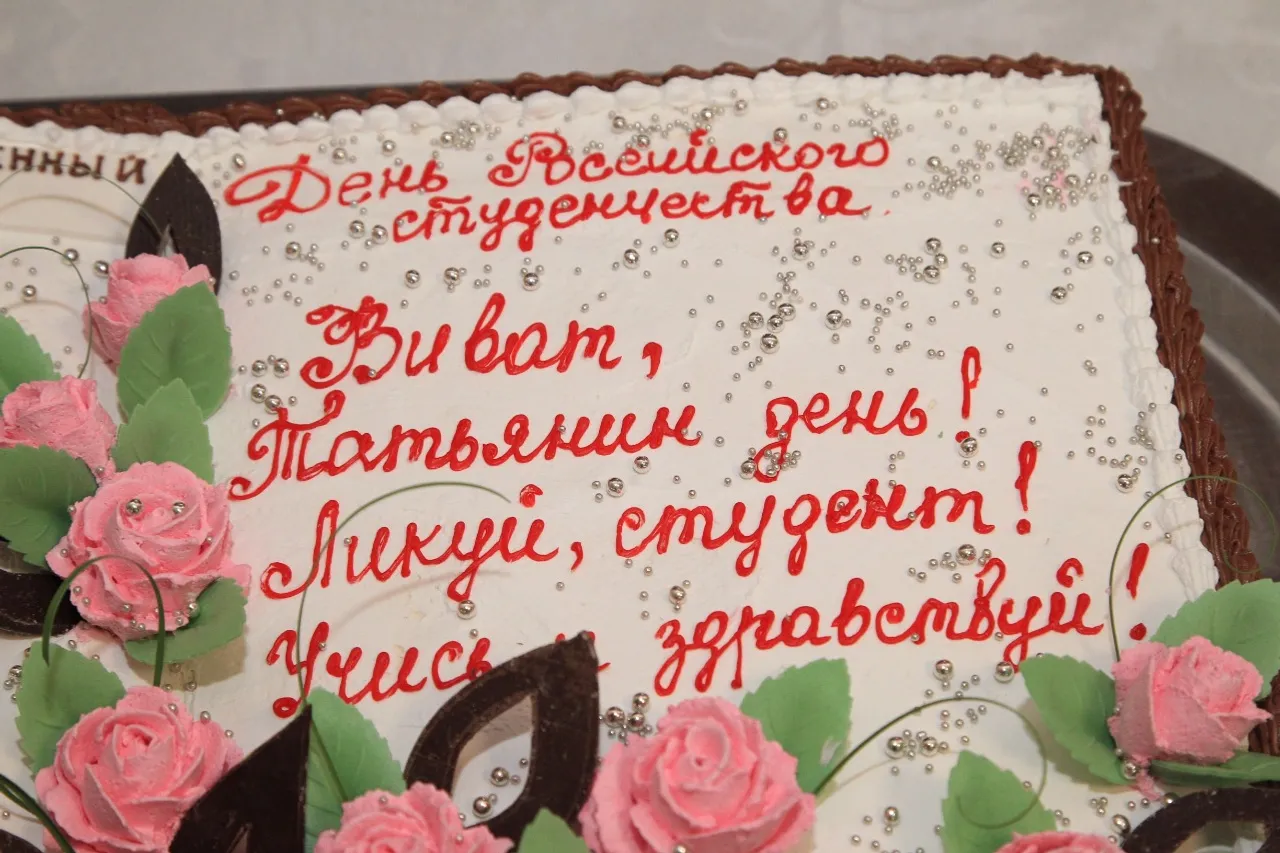 енный
День Российского
студенчества
Виват,
Татьянин день!
Ликуй, студент!
Учись здравствуй!